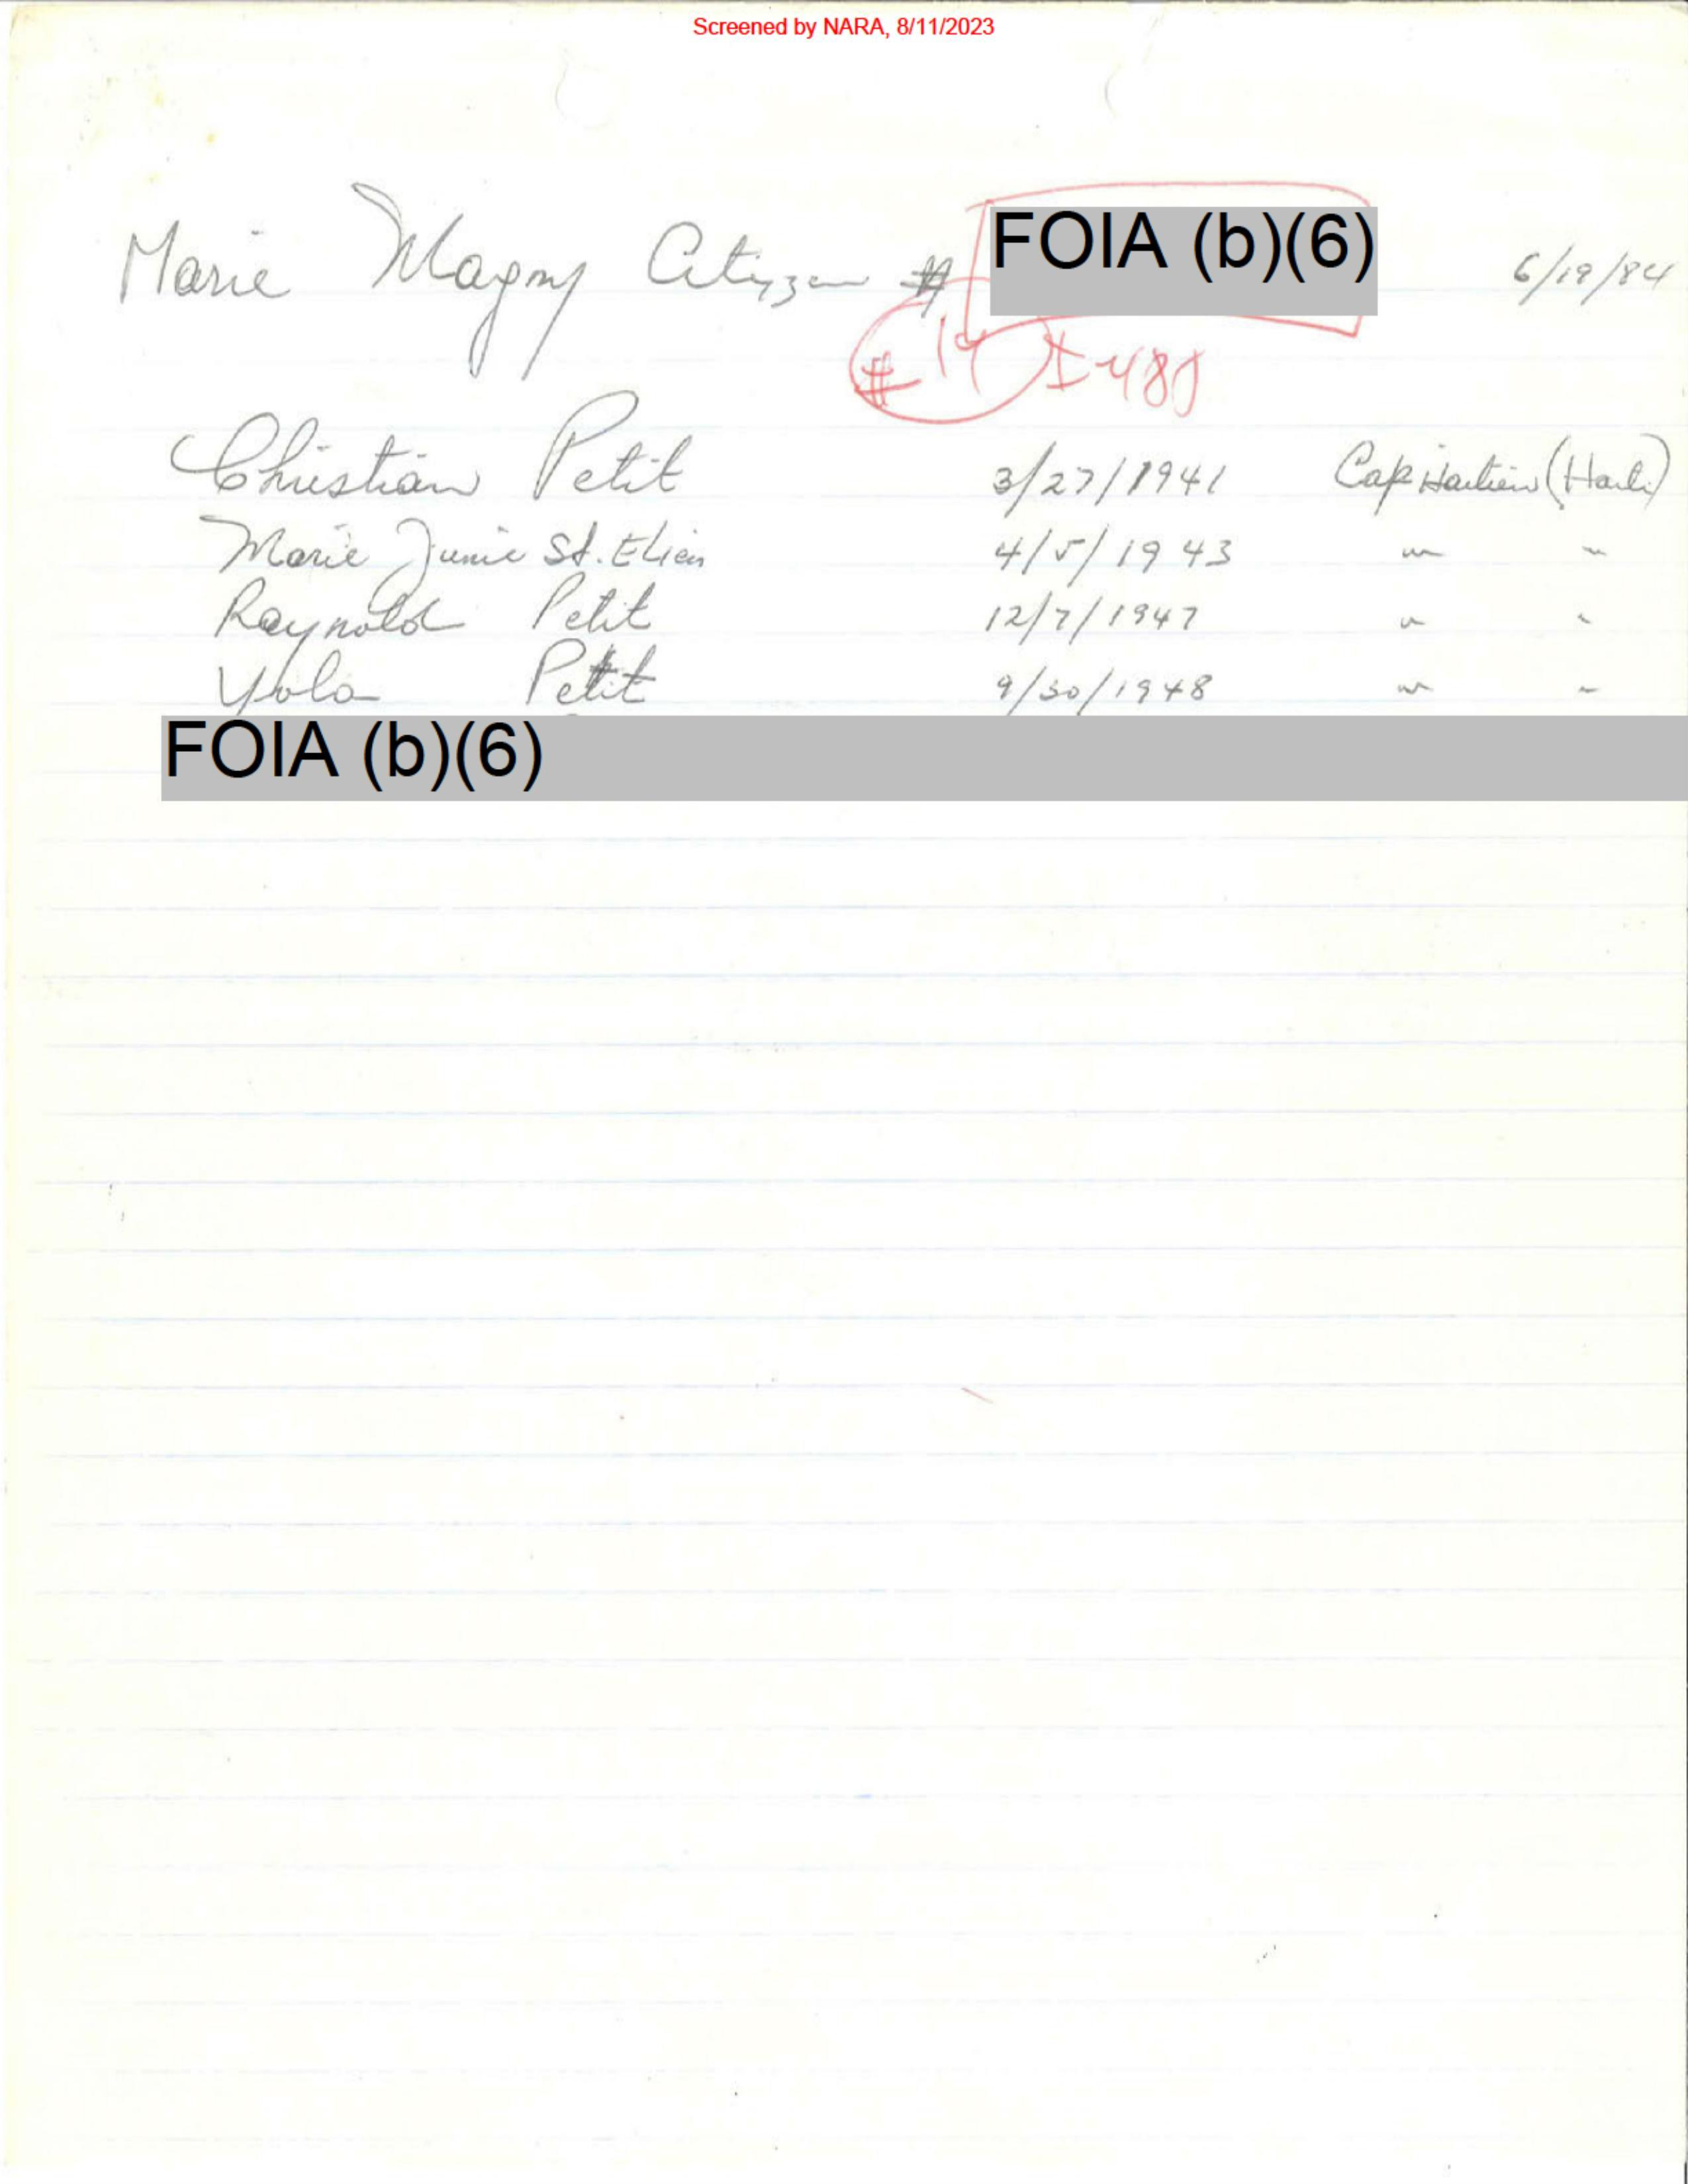 Screened by NARA, 8/11/2023
Marie Magny Citizen # FOIA (b)(6) 6/19/84
# 14 I-48
Christian Petit 3/27/1941 Cap Haitien (Haiti)
Marie Junie St. Elien 4/5/1943 " "
Raynold Petit 12/7/1947 " "
Yola Petit 9/30/1948 " "
FOIA (b)(6)